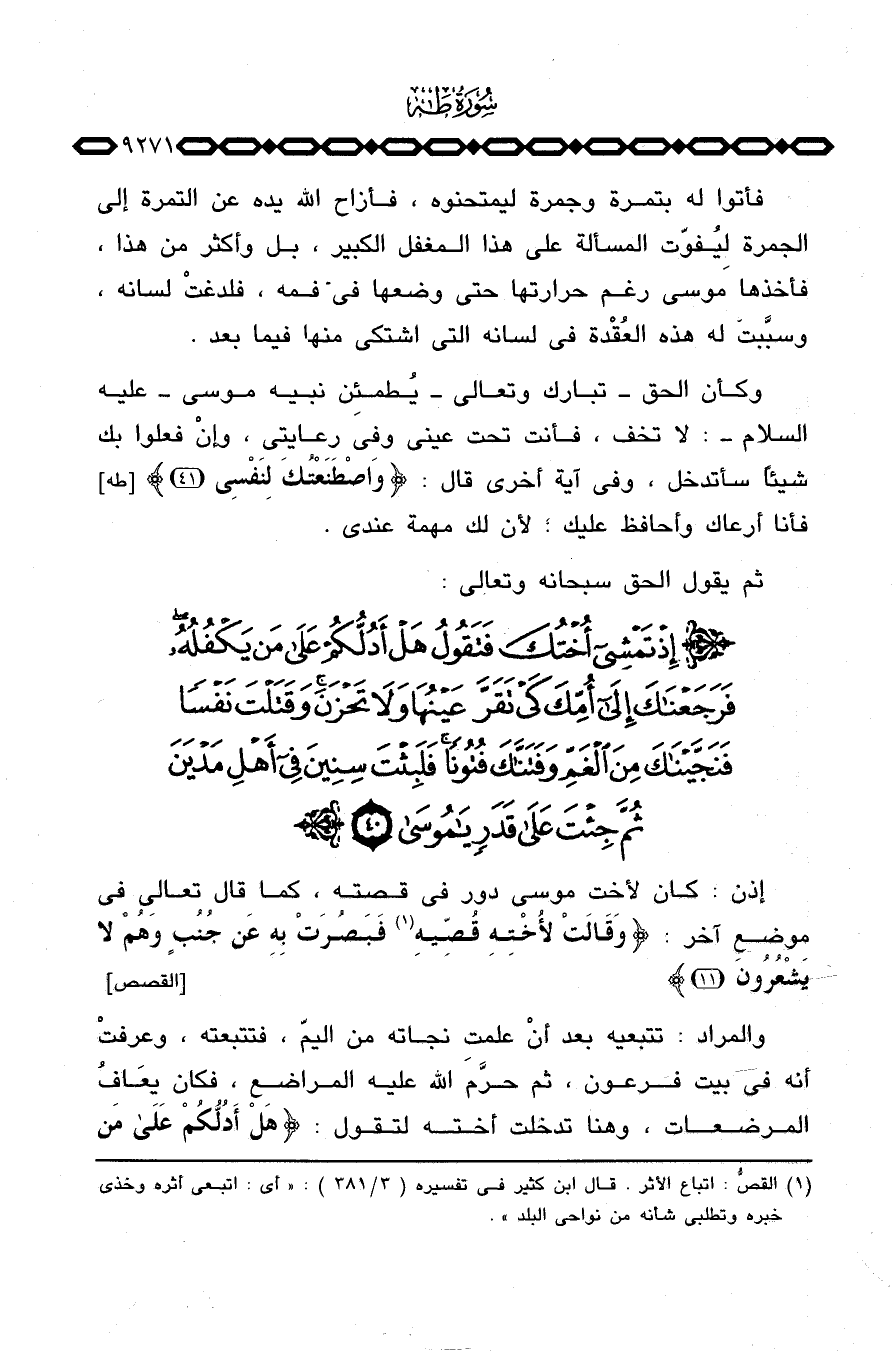 سُورَةُ طٰهٰ
٩٢٧١
فأتوا له بتمرة وجمرة ليمتحنوه ، فأزاح الله يده عن التمرة إلى
الجمرة ليُفوّت المسألة على هذا المغفل الكبير ، بل وأكثر من هذا ،
فأخذها موسى رغم حرارتها حتى وضعها فى فمه ، فلدغتْ لسانه ،
وسبَّبت له هذه العُقْدة فى لسانه التى اشتكى منها فيما بعد .
وكأن الحق – تبارك وتعالى – يُطمئن نبيه موسى – عليه
السلام – : لا تخف ، فأنت تحت عينى وفى رعايتى ، وإنْ فعلوا بك
شيئاً سأتدخل ، وفى آية أخرى قال : ﴿ وَاصْطَنَعْتُكَ لِنَفْسِى (٤١) ﴾ [طه]
فأنا أرعاك وأحافظ عليك ؛ لأن لك مهمة عندى .
ثم يقول الحق سبحانه وتعالى :
﴿ إِذْ تَمْشِىٓ أُخْتُكَ فَتَقُولُ هَلْ أَدُلُّكُمْ عَلَىٰ مَن يَكْفُلُهُۥ ۖ
فَرَجَعْنَٰكَ إِلَىٰٓ أُمِّكَ كَىْ تَقَرَّ عَيْنُهَا وَلَا تَحْزَنَ ۚ وَقَتَلْتَ نَفْسًا
فَنَجَّيْنَٰكَ مِنَ ٱلْغَمِّ وَفَتَنَّٰكَ فُتُونًا ۚ فَلَبِثْتَ سِنِينَ فِىٓ أَهْلِ مَدْيَنَ
ثُمَّ جِئْتَ عَلَىٰ قَدَرٍ يَٰمُوسَىٰ ٤٠ ﴾
إذن : كان لأخت موسى دور فى قصته ، كما قال تعالى فى
موضع آخر : ﴿ وَقَالَتْ لأُخْتِهِ قُصِّيهِ(١) فَبَصُرَتْ بِهِ عَن جُنُبٍ وَهُمْ لا
يَشْعُرُونَ (١١) ﴾ [القصص]
والمراد : تتبعيه بعد أنْ علمت نجاته من اليمّ ، فتتبعته ، وعرفتْ
أنه فى بيت فرعون ، ثم حرَّم الله عليه المراضع ، فكان يعَافُ
المرضعات ، وهنا تدخلت أخته لتقول : ﴿ هَلْ أَدُلُّكُمْ عَلَىٰ مَن
(١) القصُّ : اتباع الأثر . قال ابن كثير فى تفسيره ( ٣٨١/٣ ) : « أى : اتبعى أثره وخذى
خبره وتطلبى شأنه من نواحى البلد » .